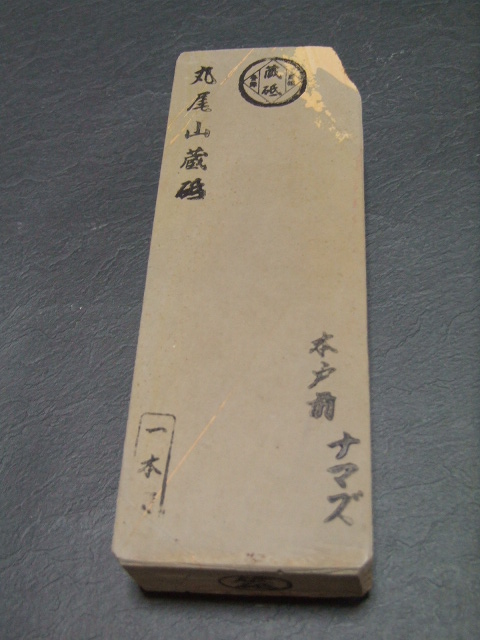 丸尾山蔵砥
蔵砥
木戸前
ナマズ
一本